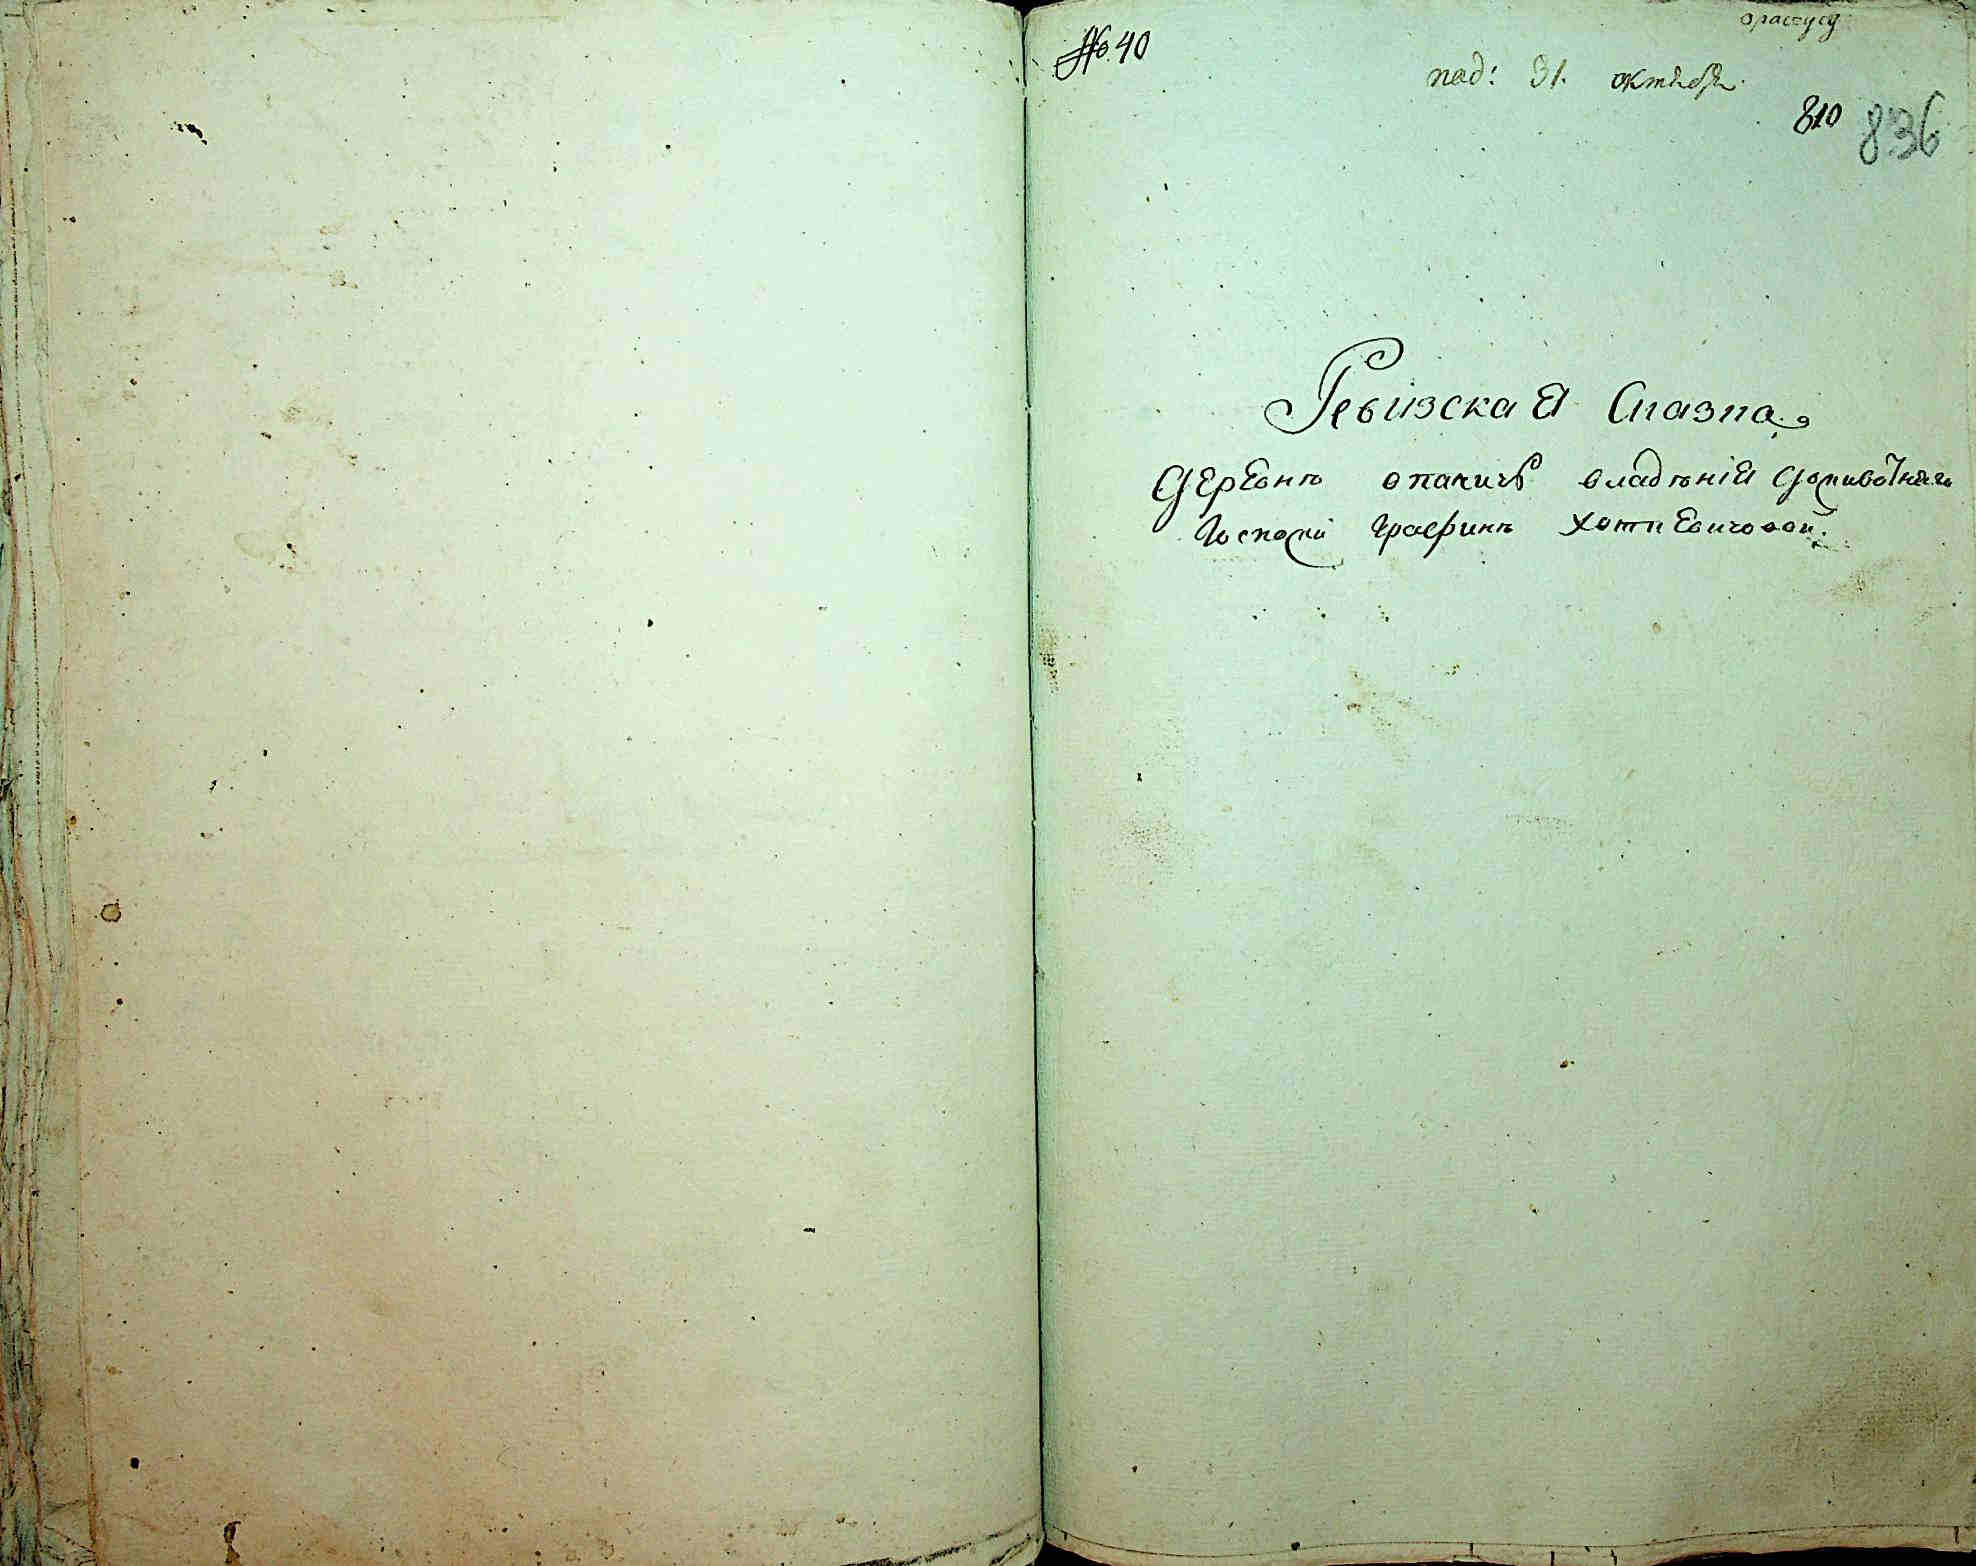 № 40
под: 31. октября.
810 836
Ревизская Сказка
Деревне опаличъ владения доживотнаго
Госпожи Графине Хоткевичовой.